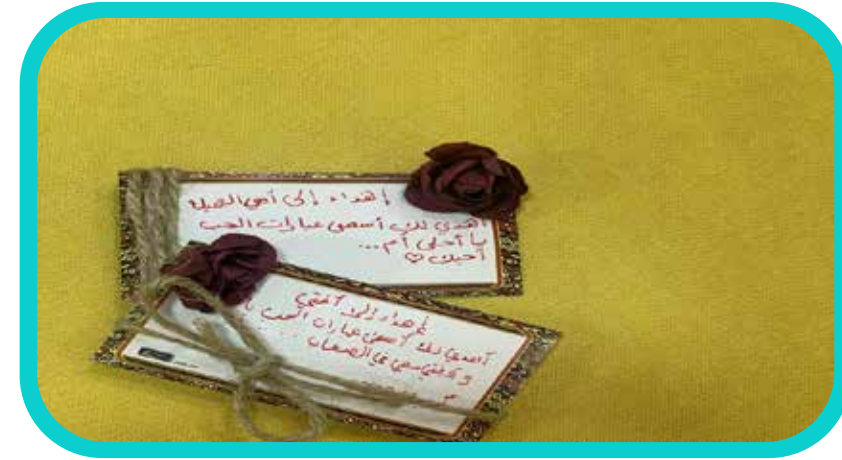 إهداء إلى أمي الحبيبة
أهدي لك أسمى عبارات الحب
يا أحلى أم...
أحبك ♡
إهداء إلى أختي
أهدي لك أسمى عبارات الحب يا
و في الصعاب